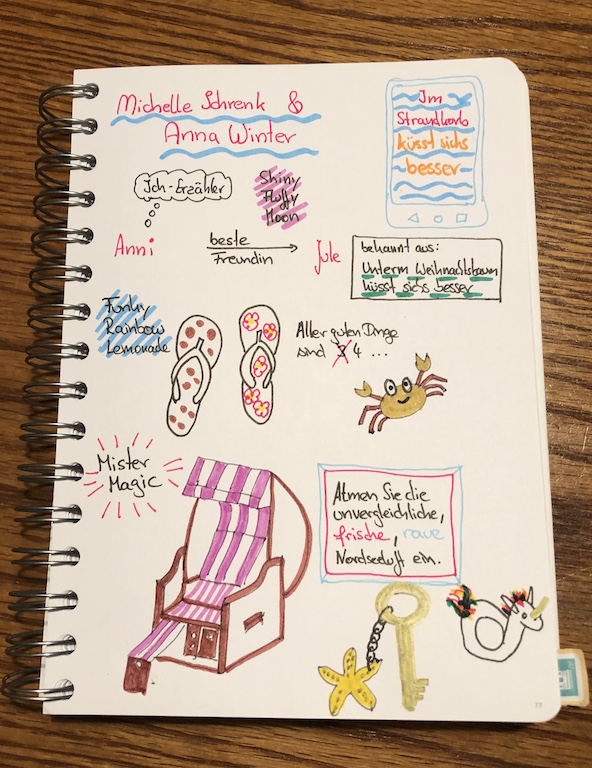 Michelle Schrenk &
Anna Winter
Im
Strandkorb
küsst sichs
besser
Ich-Erzähler
Shiny
Fluffy
Moon
Anni
beste
Freundin
Jule
bekannt aus:
Unterm Weihnachtsbaum
küsst sichs besser
Funky
Rainbow
Lemonade
Aller guten Dinge
sind 3 4 ...
Mister
Magic
Atmen Sie die
unvergleichliche,
frische, raue
Nordseeluft ein.